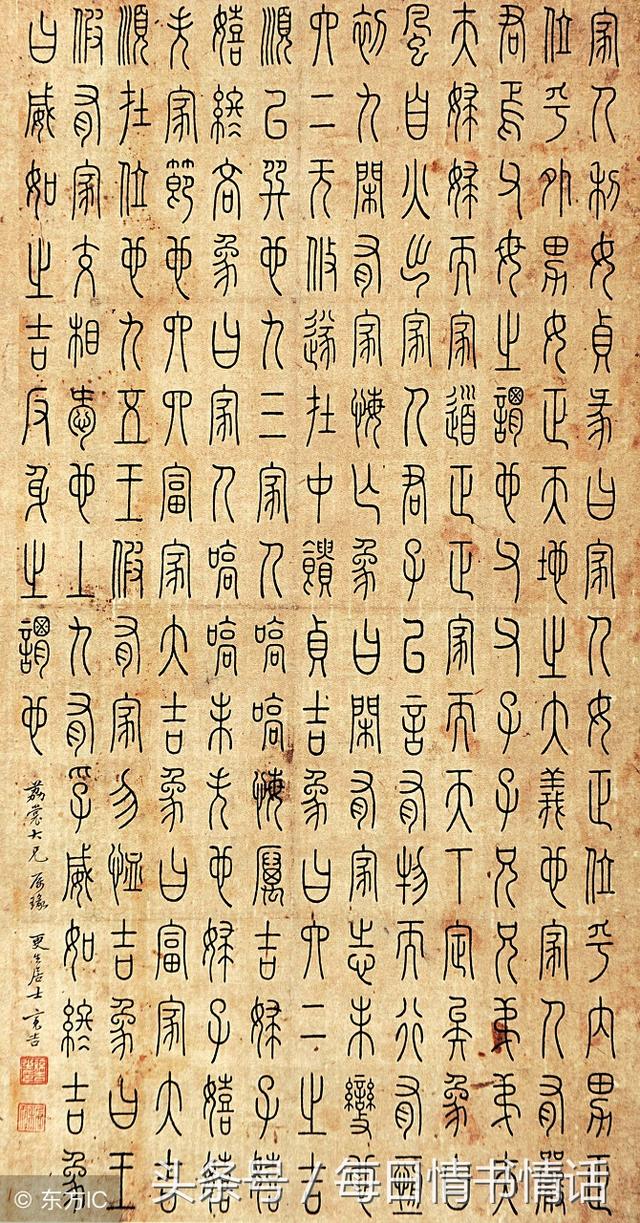 家人利女貞彖曰家人女正位乎內男正
位乎外男女正天地之大義也家人有嚴
君焉父母之謂也父父子子兄兄弟弟夫
夫婦婦而家道正正家而天下定矣象曰
風自火出家人君子以言有物而行有恆
初九閑有家悔亡象曰閑有家志未變也
六二无攸遂在中饋貞吉象曰六二之吉
順以巽也九三家人嗃嗃悔厲吉婦子嘻
嘻終吝象曰家人嗃嗃未失也婦子嘻嘻
失家節也六四富家大吉象曰富家大吉
順在位也九五王假有家勿恤吉象曰王
假有家交相愛也上九有孚威如終吉象
曰威如之吉反身之謂也
荔裳大兄屬篆 更生居士亮吉
© 东方IC
头条号 / 每日情书情话